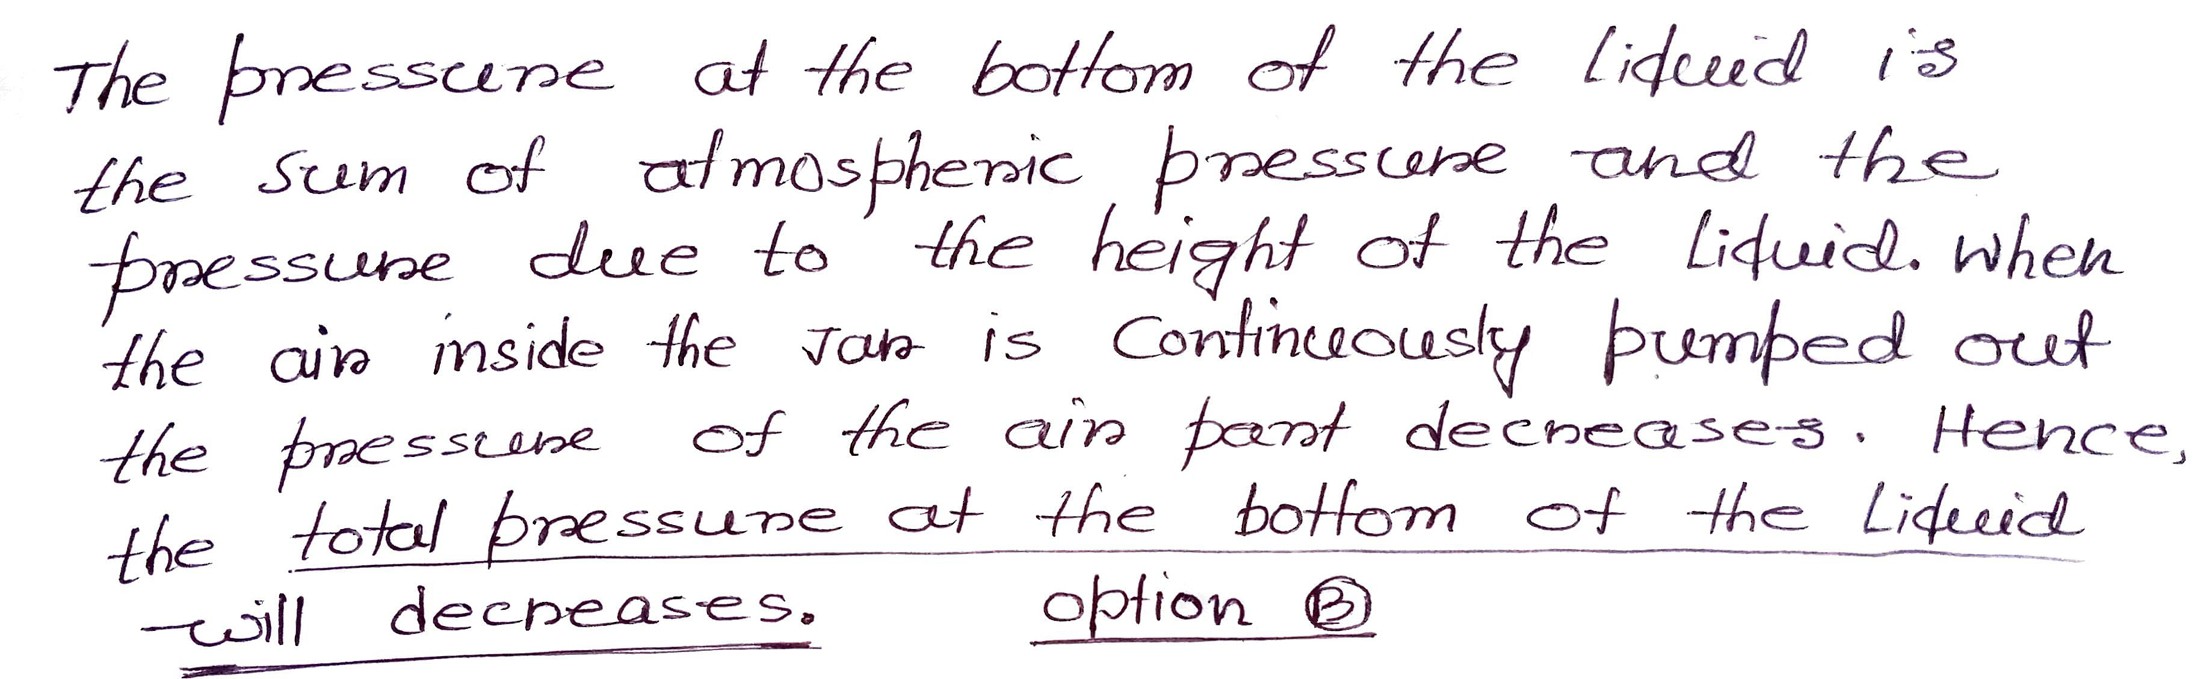 The pressure at the bottom of the liquid is
the sum of atmospheric pressure and the
pressure due to the height of the liquid. when
the air inside the Jar is Continuously pumped out
the pressure of the air part decreases. Hence,
the total pressure at the bottom of the liquid
will decreases. option B